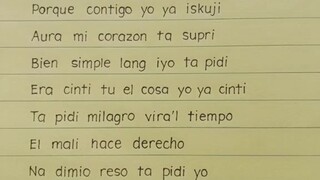 Porque contigo yo ya iskuji
Aura mi corazon ta supri
Bien simple lang iyo ta pidi
Era cinti tu el cosa yo ya cinti
Ta pidi milagro vira'l tiempo
El mali hace derecho
Na dimio reso ta pidi yo